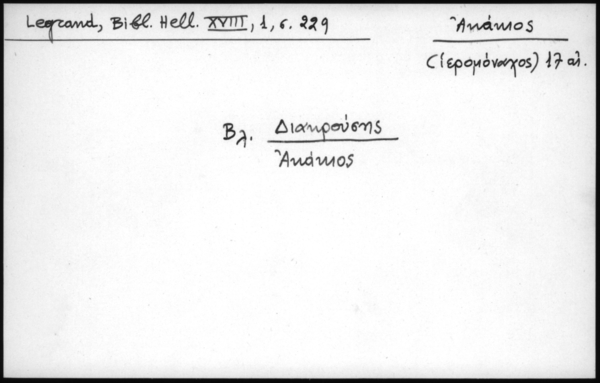 Legrand, Bibl. Hell. XVIII, 1, σ. 229
Ἀκάκιος
(ἱερομόναχος) 17 αἰ.
Βλ. Διακρούσης
Ἀκάκιος